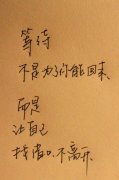 等待
不是为了你能回来
而是
让自己
找借口不离开